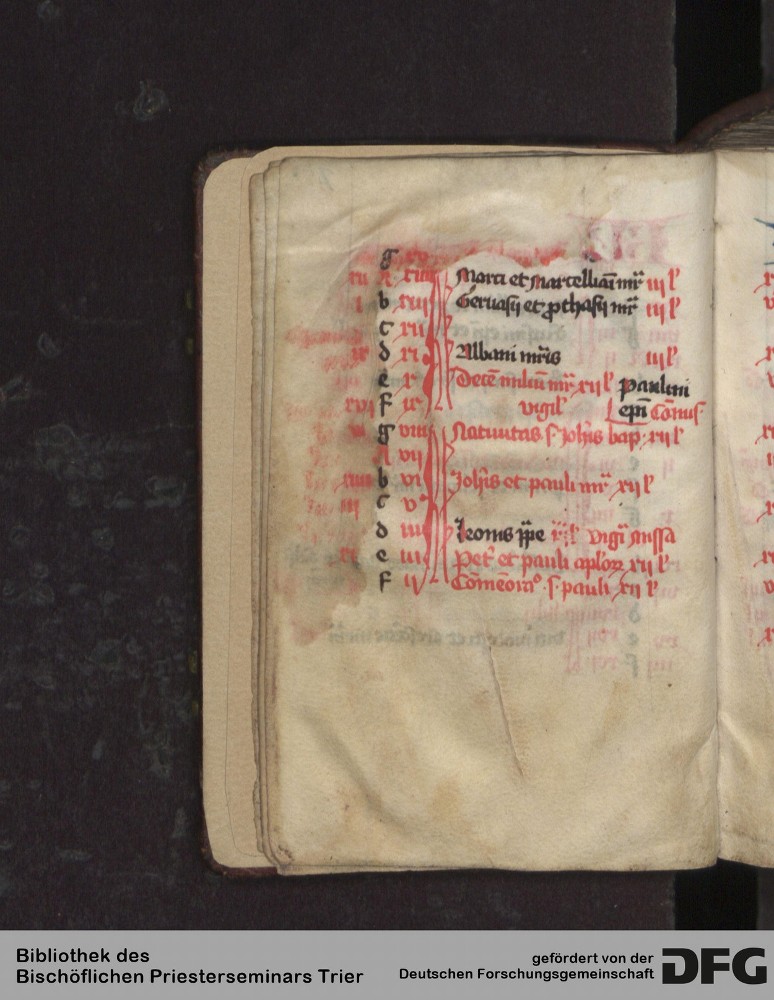 g xv
A xiiii Marci et Marcelliani mr̄ iii l
i b xiii Geruasii et ꝓthasii mr̄ iii l
c xii
ix d xi Albani mr̄is iii l
e x Decē miliū mr̄ xii l paulini
xvi f ix vigil ep̄i Cōnus
g viii Natiuitas s Joh̄is bap xii l
A vii
xiiii b vi Joh̄is et pauli mr̄ xii l
iii c v
d iiii Leonis pp̄e iii l vigil missa
xi e iii Pet et pauli aploꝝ xii l
f ii Cōmēoraᵒ s pauli xii l
Bibliothek des
Bischöflichen Priesterseminars Trier
gefördert von der
Deutschen Forschungsgemeinschaft
DFG